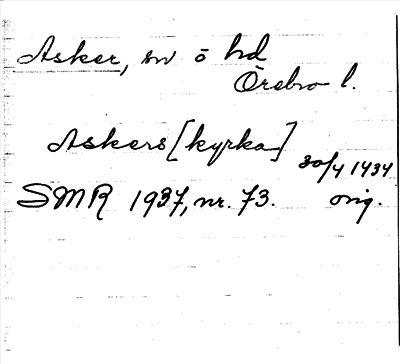 Asker, sn ö hd
Örebro l.
Askers [kyrka]
30/4 1434
SMR 1937, nr. 73. orig.